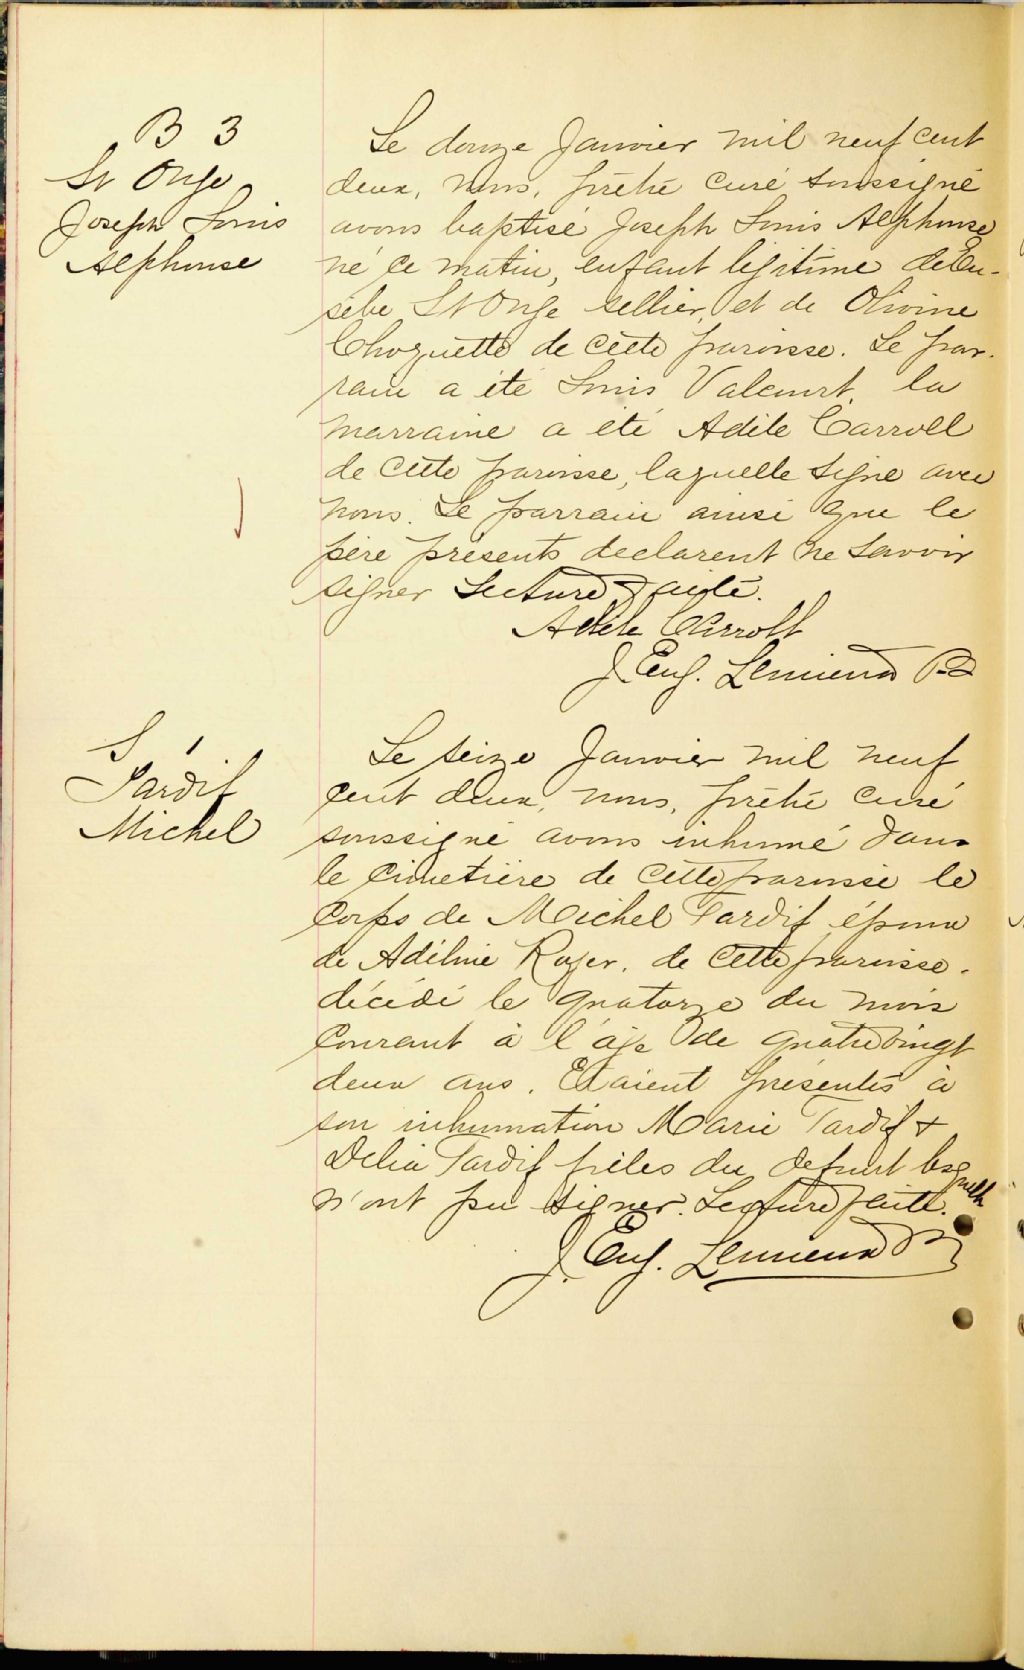 B 3
St Onge
Joseph Louis
Alphonse
Le douze Janvier mil neuf cent
deux, nous, prêtre curé soussigné
avons baptisé Joseph Louis Alphonse
né ce matin, enfant légitime de Eu-
sèbe St Onge sellier, et de Olivine
Choquette de cette paroisse. Le par-
rain a été Louis Valcourt, la
marraine a été Adèle Carroll
de cette paroisse, laquelle signe avec
nous. Le parrain ainsi que le
père présents declarent ne savoir
signer Lecture faite.
Adèle Carroll
J. Eug. Lemieux Ptr
S 1
Tardif
Michel
Le seize Janvier mil neuf
cent deux, nous, prêtre curé
soussigné avons inhumé dans
le cimetière de cette paroisse le
corps de Michel Tardif époux
de Adéline Roger, de cette paroisse.
décédé le quatorze du mois
courant à l'âge de quatrevingt
deux ans. Etaient présentes à
son inhumation Marie Tardif &
Delia Tardif filles du defunt lesquelles
n'ont pu signer. Lecture faite.
J. Eug. Lemieux Ptr